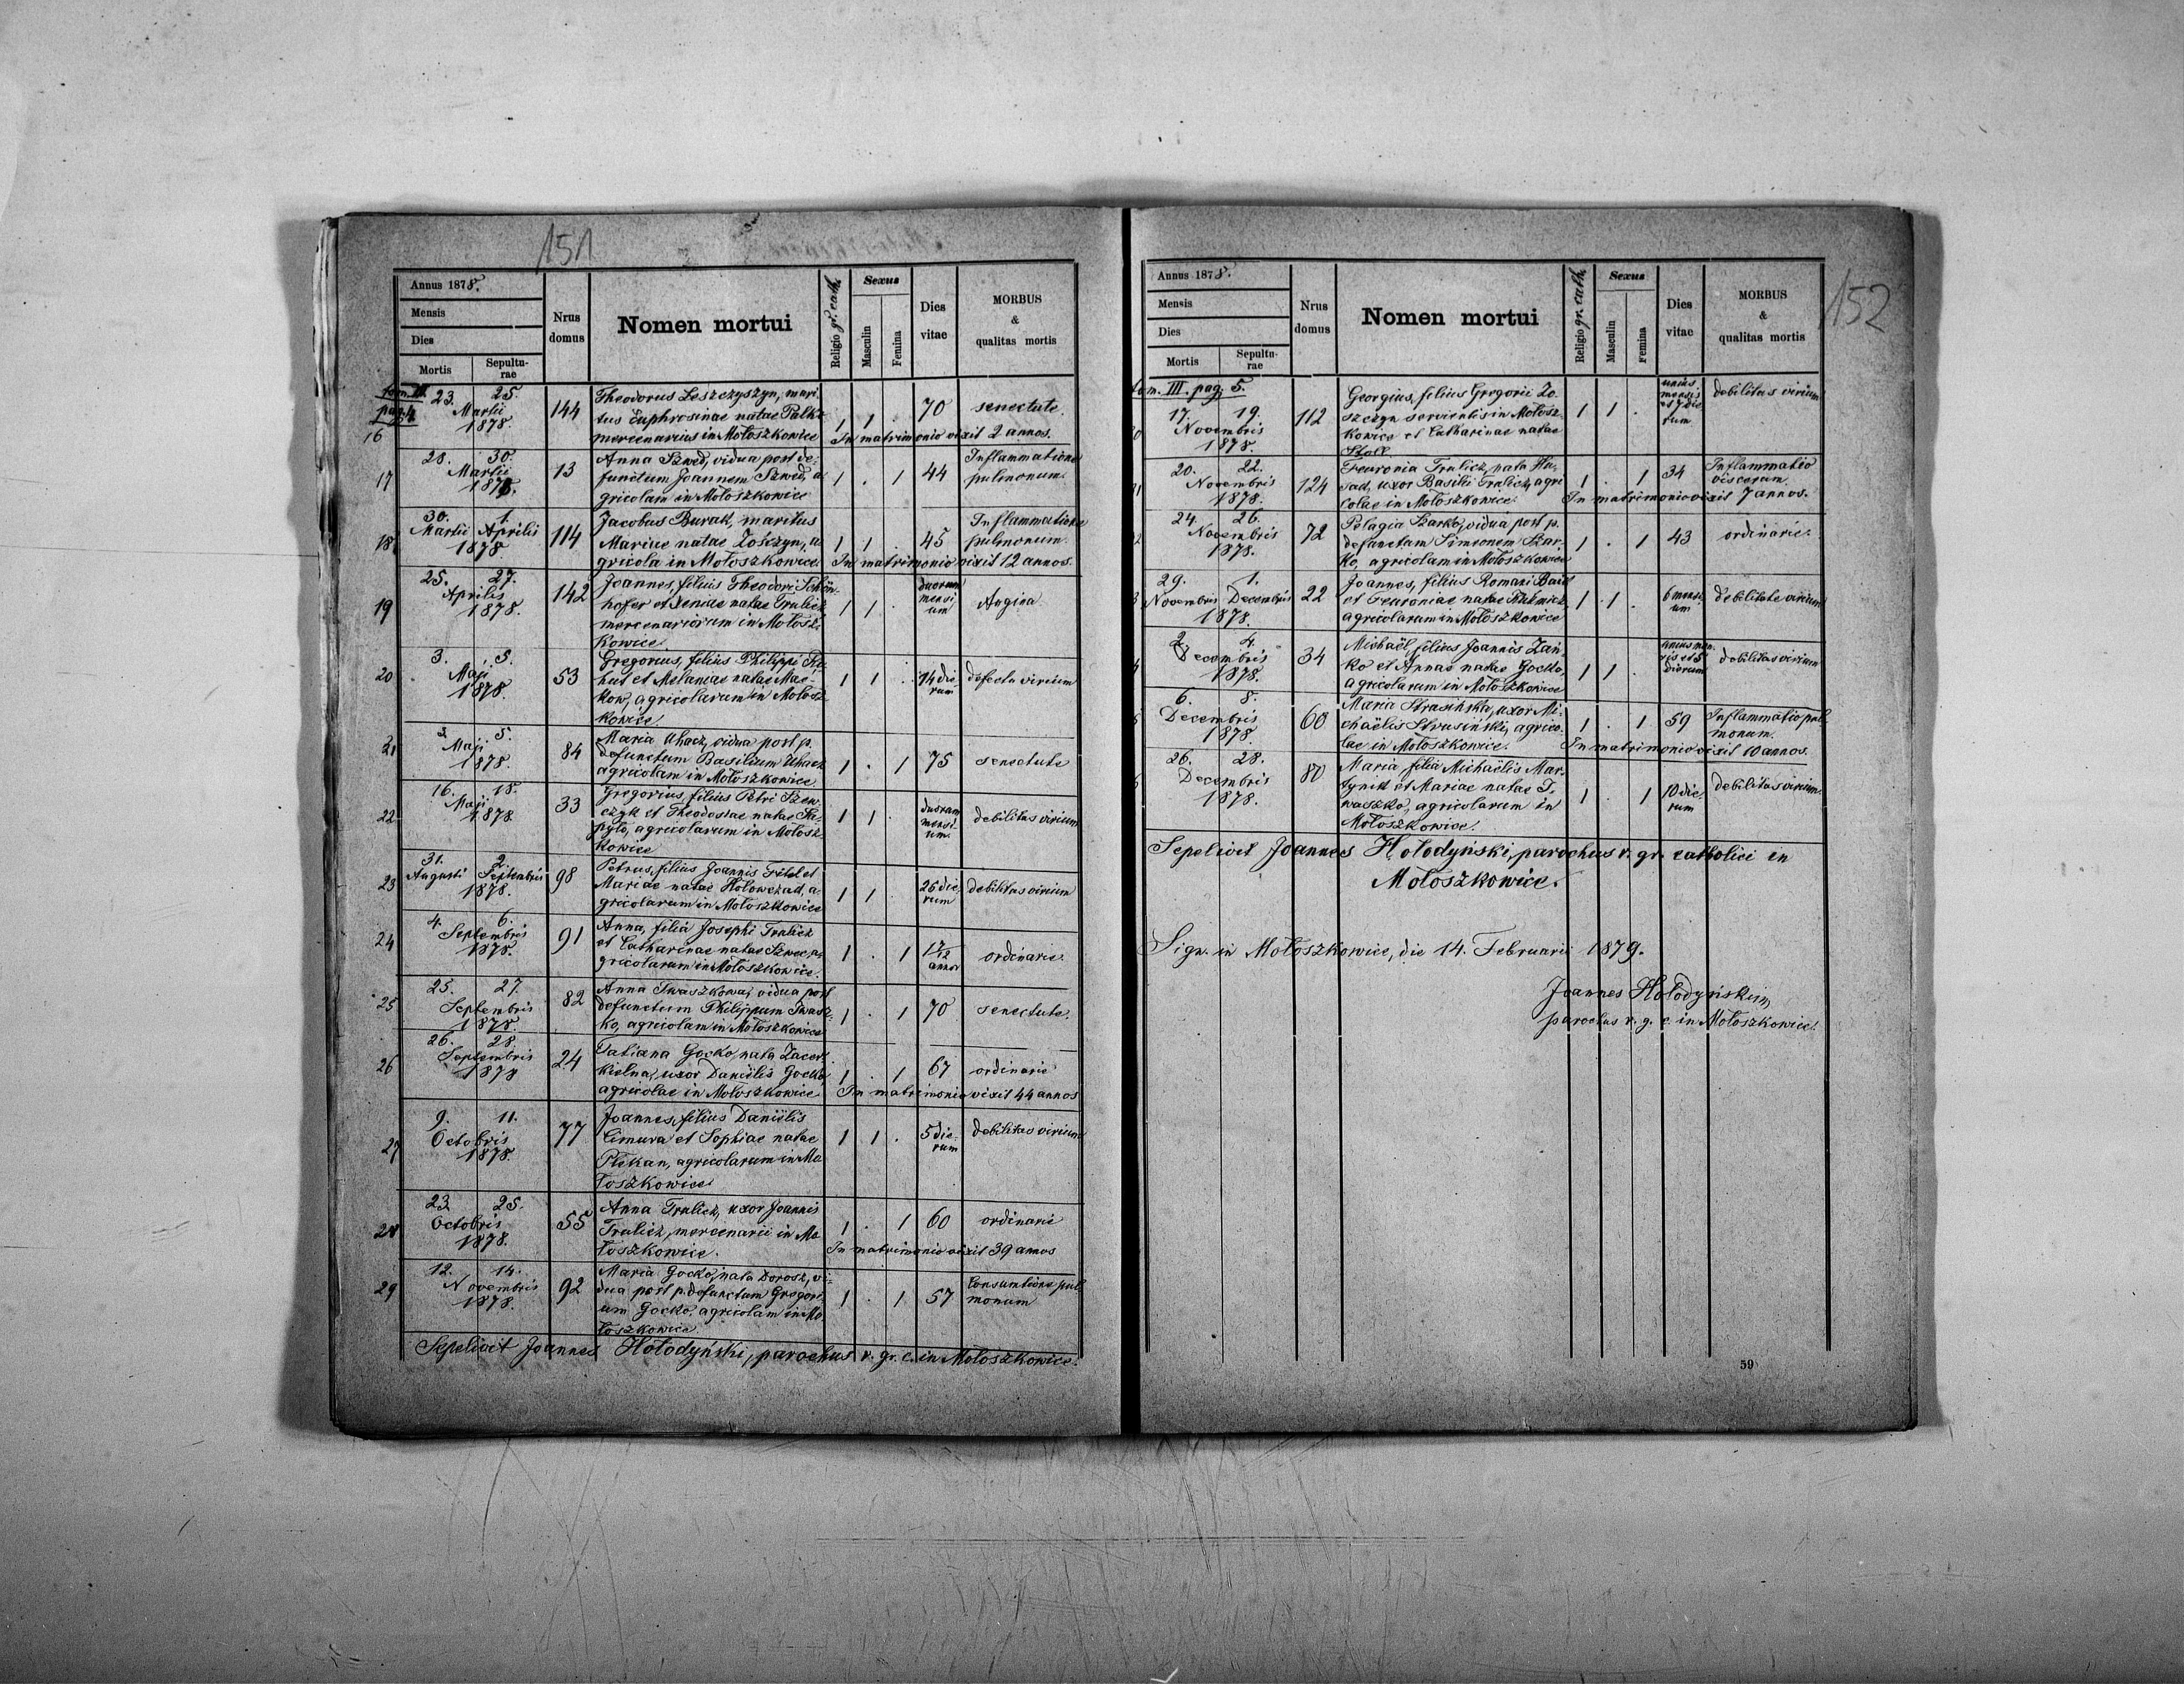 151
Annus 1878.
Mensis
Dies
Mortis
Sepultu-
rae
Nrus
domus
Nomen mortui
Religio gr. cath.
Sexus
Masculin
Femina
Dies
vitae
MORBUS
&
qualitas mortis
tom. III.
pag. 4
16
23. 25.
Martii
1878
144
Theodorus Leszczyszyn, mari-
tus Euphrosinae natae Palk
mercenarius in Mołoszkowice
1 1 . 70 senectute
In matrimonio vixit 2 annos.
17
28. 30.
Martii
1878.
13
Anna Szwed, vidua post de-
functum Joannem Szwed, a-
gricolam in Mołoszkowice
1 . 1 44
Inflammatione
pulmonum.
18
30. 1.
Martii Aprilis
1878
114
Jacobus Burak, maritus
Mariae natae Zoszczyn, a-
gricola in Mołoszkowice.
1 1 . 45
Inflammatione
pulmonum.
In matrimonio vixit 12 annos.
19
25. 27.
Aprilis
1878.
142
Joannes, filius Theodori Schön-
hofer et Xeniae natae Tralicz
mercenariorum in Mołosz-
kowice.
1 1 .
duorum
mensi
um
Angina
20
3. 5.
Maji
1878.
53
Gregorius, filius Philippi
et Melaniae natae Mac-
kow, agricolarum in Mołosz-
kowice.
1 1 .
14 die
rum
defectu virium
21
3. 5.
Maji
1878.
84
Maria Uhacz, vidua post p.
defunctum Basilium Uhacz
agricolam in Mołoszkowice
1 . 1 75 senectute
22
16. 18.
Maji
1878.
33
Gregorius, filius Petri Szew-
czyk et Theodosiae natae
agricolarum in Mołosz-
kowice
1 1 .
duorum
mensi-
um.
debilitas virium
23
31. 2.
Augusti Septembris
1878.
98
Petrus, filius Joannis Fritel et
Mariae natae Hołowczad, a-
gricolarum in Mołoszkowice
1 1 .
26 die
rum
debilitas virium
24
4. 6.
Septembris
1878.
91
Anna, filia Josephi Tralicz
et Catharinae natae Szwec, a-
gricolarum in Mołoszkowice.
1 . 1
annor
ordinarie.
25
25. 27.
Septembris
1878.
82
Anna Iwaszkowa, vidua post
defunctum Philippum Iwasz-
ko, agricolam in Mołoszkowice
1 . 1 70 senectute.
26
26. 28.
Septembris
1878
24
Tatiana Gocko, nata Zacer-
kielna, uxor Daniëlis Gocko,
agricolae in Mołoszkowice.
1 . 1 67 ordinarie
In matrimonio vixit 44 annos
27
9. 11.
Octobris
1878.
77
Joannes, filius Daniëlis
Cimura et Sophiae natae
Plekan, agricolarum in Mo
łoszkowice.
1 1 .
5 die-
rum
debilitas virium
28
23 25.
Octobris
1878.
55
Anna Tralicz, uxor Joannis
Tralicz, mercenarii in Mo
łoszkowice.
1 . 1 60 ordinarie
In matrimonio vixit 39 annos
29
12. 14.
Novembris
1878.
92
Maria Gocko, nata Dorosz, vi-
dua post p. defunctum Gregori-
um Gocko, agricolam in Mo
łoszkowice
1 . 1 57
Consumtione pul
monum
Sepelivit Joannes Hołodyński, parochus r. gr. c. in Mołoszkowice.
152
Annus 1878.
Mensis
Dies
Mortis
Sepultu-
rae
Nrus
domus
Nomen mortui
Religio gr. cath.
Sexus
Masculin
Femina
Dies
vitae
MORBUS
&
qualitas mortis
tom. III. pag. 5.
17. 19.
Novembris
1878.
112
Georgius, filius Gregorii Zo-
szczyn servientis in Mołosz-
kowice et Catharinae natae
Stoll
1 1 .
unius
mensis
et 7 die
rum
debilitas virium
20. 22.
Novembris
1878.
124
Feuronia Tralicz, nata Hu-
sad, uxor Basilii Tralicz, agri
colae in Mołoszkowice.
1 . 1 34
Inflammatio
viscerum.
In matrimonio vixit 7 annos.
24 26.
Novembris
1878.
72
Pelagia Szarko, vidua post p.
defunctum Simeonem Szar-
ko, agricolam in Mołoszkowice.
1 . 1 43 ordinarie.
29. 1.
Novembris Decembris
1878.
22
Joannes, filius Romani
et Feuroniae natae
agricolarum in Mołoszkowice
1 1 .
6 mensi
um
debilitate virium
2. 4.
Decembris
1878.
34
Michaël, filius Joannis Zan-
ko et Annae natae Gocko,
agricolarum in Mołoszkowice
1 1 .
unius men-
sis et 5
dierum
debilitas virium
6. 8.
Decembris
1878.
60
Maria Strusińska, uxor Mi-
chaëlis Strusiński, agrico-
lae in Mołoszkowice.
1 . 1 59
Inflammatio pul
monum.
In matrimonio vixit 10 annos.
26. 28.
Decembris
1878.
80
Maria filia Michaëlis Mar-
tynik et Mariae natae I-
waszko, agricolarum in
Mołoszkowice.
1 . 1
10 die-
rum
debilitas virium.
Sepelivit Joannes Hołodyński, parochus r. gr. catholici in
Mołoszkowice.
Sign. in Mołoszkowice, die 14. Februarii 1879.
Joannes Hołodyński
parochus r. g. c. in Mołoszkowice.
59